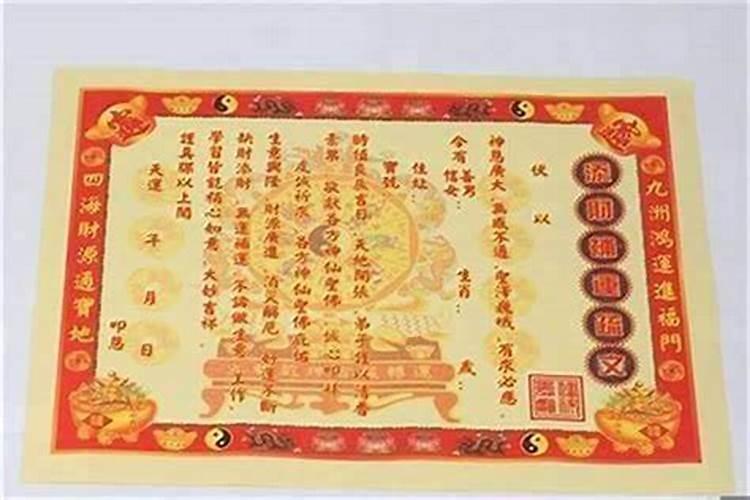 九洲鴻運進福門
添財補運疏文
伏以
神恩廣大 無感不通 聖澤巍峨 有求必應
今有 善男 信女： 生肖： 歲：
住址：
寶號
時值良辰吉日 天地開張 弟子僅以清香
素果 敬獻各方神仙聖佛 誠心叩拜
虔誠祈求 各方神仙聖佛庇佑
生意興隆 財源廣進 消災解厄 好運不斷
缺財添財 無運補運 不論做生意 工作
學習皆能稱心如意 大妙吉祥
謹具疏以上聞
天運 年 月 日
叩恩
四海財源通寶地